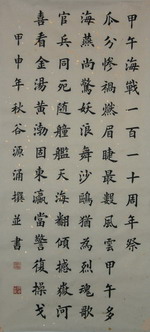 甲午海戰一百一十周年祭
瓜分慘禍燃眉睫最覩風雲甲午多
海燕尚驚妖浪舞沙鷗猶為烈魂歌
官兵同死随艟艦天海翻傾撼嶽河
喜看金湯黄渤固東瀛當警復操戈
甲申年秋谷源涌撰並書